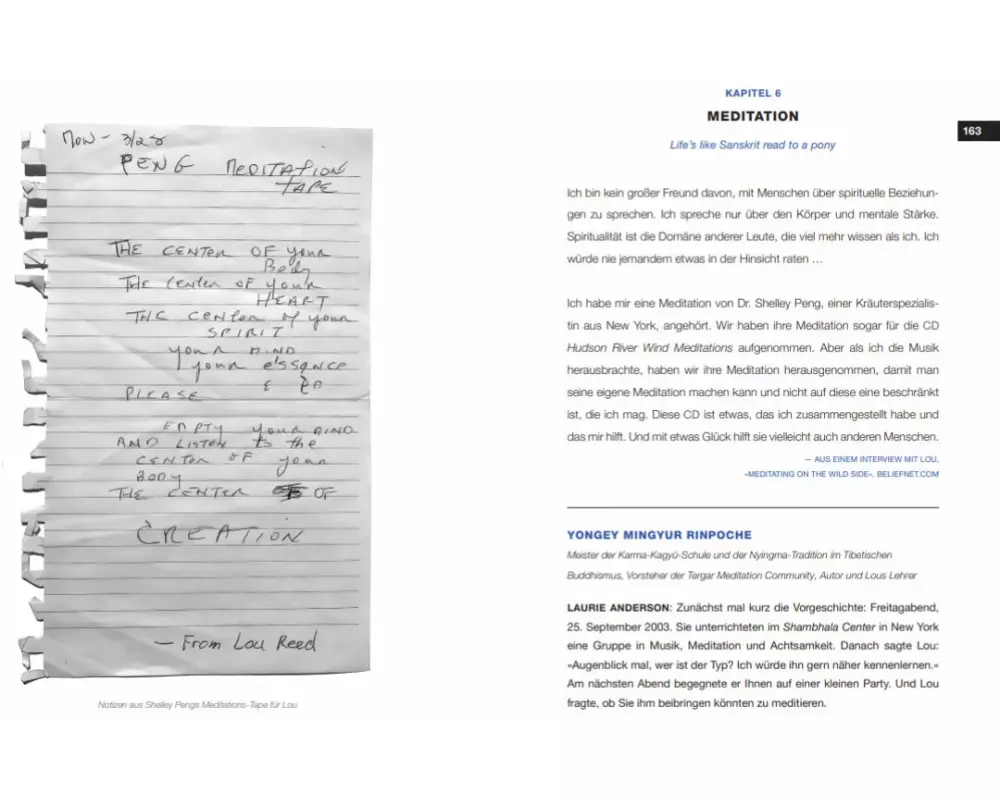 Mon - 3/28
PENG MEDITATION
TAPE
THE CENTER OF your
Body
THE CENTER OF your
HEART
THE CENTER of your
SPIRIT
your MIND
your essence
PLEASE
EMPTY your MIND
AND LISTEN to the
CENTER OF your
BODY
THE CENTER OF
CREATION
— From Lou Reed
Notizen aus Shelley Pengs Meditations-Tape für Lou
KAPITEL 6
MEDITATION
Life's like Sanskrit read to a pony
163
Ich bin kein großer Freund davon, mit Menschen über spirituelle Beziehun-
gen zu sprechen. Ich spreche nur über den Körper und mentale Stärke.
Spiritualität ist die Domäne anderer Leute, die viel mehr wissen als ich. Ich
würde nie jemandem etwas in der Hinsicht raten …
Ich habe mir eine Meditation von Dr. Shelley Peng, einer Kräuterspezialis-
tin aus New York, angehört. Wir haben ihre Meditation sogar für die CD
Hudson River Wind Meditations aufgenommen. Aber als ich die Musik
herausbrachte, haben wir ihre Meditation herausgenommen, damit man
seine eigene Meditation machen kann und nicht auf diese eine beschränkt
ist, die ich mag. Diese CD ist etwas, das ich zusammengestellt habe und
das mir hilft. Und mit etwas Glück hilft sie vielleicht auch anderen Menschen.
— AUS EINEM INTERVIEW MIT LOU,
»MEDITATING ON THE WILD SIDE«, BELIEFNET.COM
YONGEY MINGYUR RINPOCHE
Meister der Karma-Kagyü-Schule und der Nyingma-Tradition im Tibetischen
Buddhismus, Vorsteher der Tergar Meditation Community, Autor und Lous Lehrer
LAURIE ANDERSON: Zunächst mal kurz die Vorgeschichte: Freitagabend,
25. September 2003. Sie unterrichteten im Shambhala Center in New York
eine Gruppe in Musik, Meditation und Achtsamkeit. Danach sagte Lou:
»Augenblick mal, wer ist der Typ? Ich würde ihn gern näher kennenlernen.«
Am nächsten Abend begegnete er Ihnen auf einer kleinen Party. Und Lou
fragte, ob Sie ihm beibringen könnten zu meditieren.